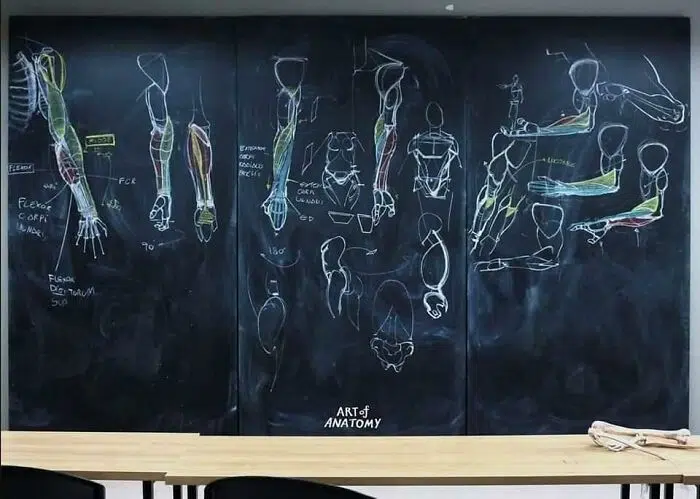 FLEXOR
FCR
FLEXOR
CARPI
ULNARIS
FLEXOR
DIGITORUM
SUP
90°
EXTENSOR
CARPI
RADIALIS
BREVIS
EXTEN
CARPI
ULNARI
ED
180°
ART of
ANATOMY